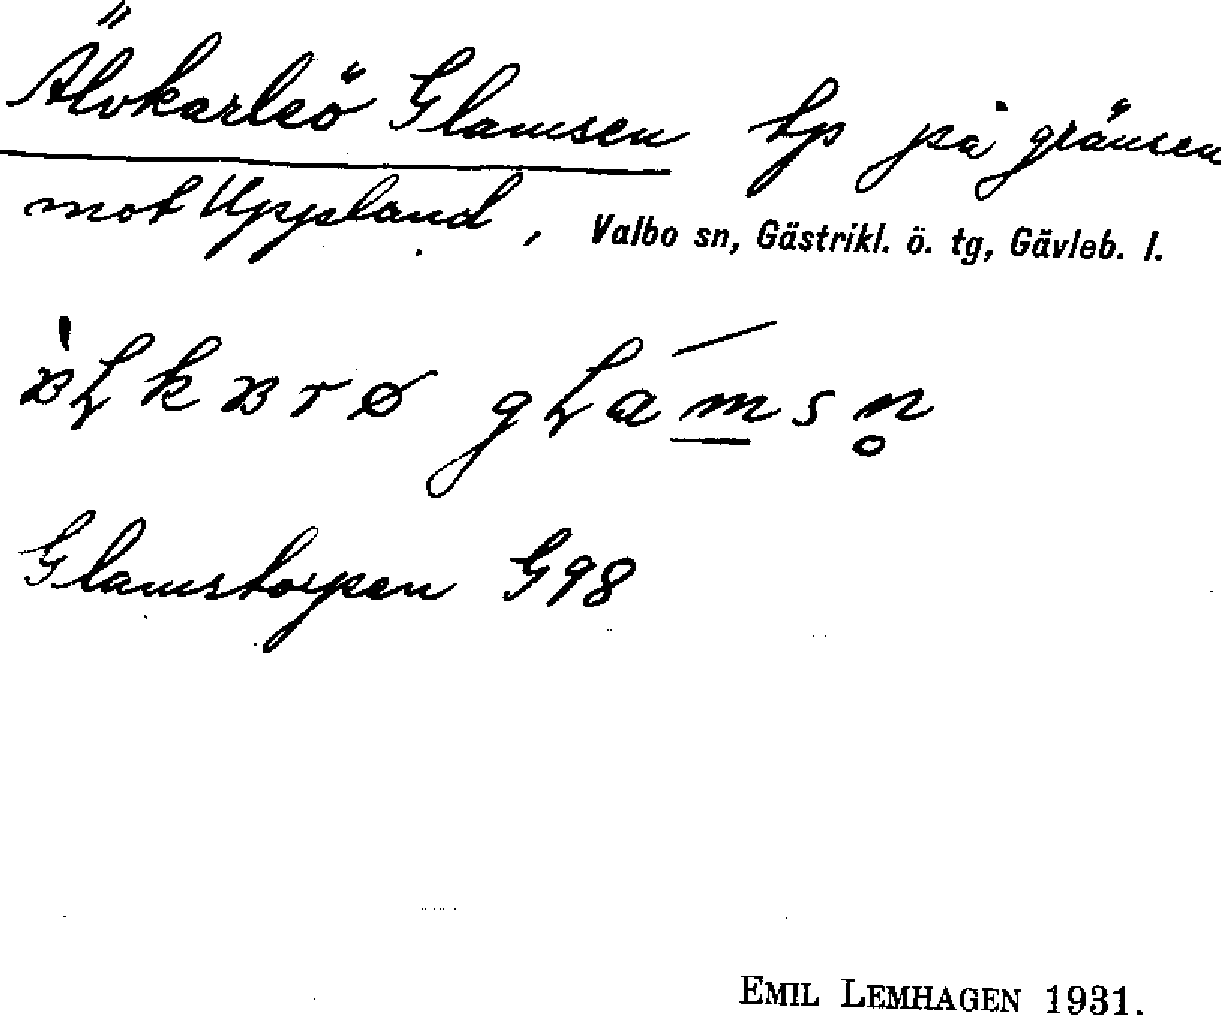 Älvkarleö Glamsen tp på gränsen
mot Uppland, Valbo sn, Gästrikl. ö. tg, Gävleb. l.
Glamstorpen G98
EMIL LEMHAGEN 1931.